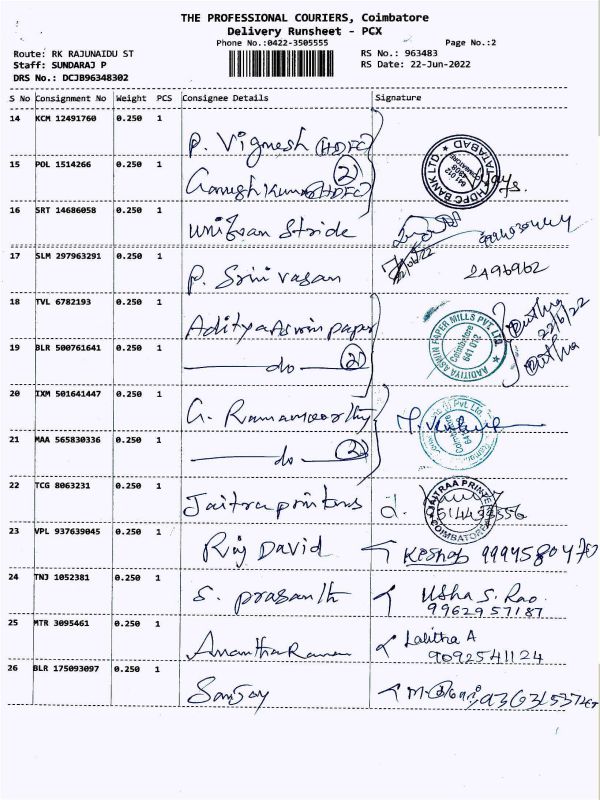 THE PROFESSIONAL COURIERS, Coimbatore
Delivery Runsheet - PCX
Phone No.:0422-3505555 Page No.:2
Route: RK RAJUNAIDU ST RS No.: 963483
Staff: SUNDARAJ P RS Date: 22-Jun-2022
DRS No.: DCJB96348302
S No Consignment No Weight PCS Consignee Details Signature
14 KCM 12491760 0.250 1
P. Vignesh (HDFC)
15 POL 1514266 0.250 1
(2)
HDFC BANK LTD.
641 012
(HDFC)
16 SRT 14686058 0.250 1
Stride
22/6/22
17 SLM 297963291 0.250 1
P. Srinivasan 2496962
18 TVL 6782193 0.250 1
Aditya Aswin paper
AADITIYA ASWIN PAPER MILLS PVT. LTD.
Coimbatore
641 012
22/6/22
19 BLR 500761641 0.250 1
do (2)
20 IXM 501641447 0.250 1
G. Ramamoorthy
21 MAA 565830336 0.250 1
do (2)
22 TCG 8063231 0.250 1
Jaitra printers
COIMBATORE
23 VPL 937639045 0.250 1
Raj David Keshab 9994580470
24 TNJ 1052381 0.250 1
S. prasanth Usha S. Rao
9962957187
25 MTR 3095461 0.250 1
Anantha Raman Lalitha A
9092541124
26 BLR 175093097 0.250 1
Sanjay